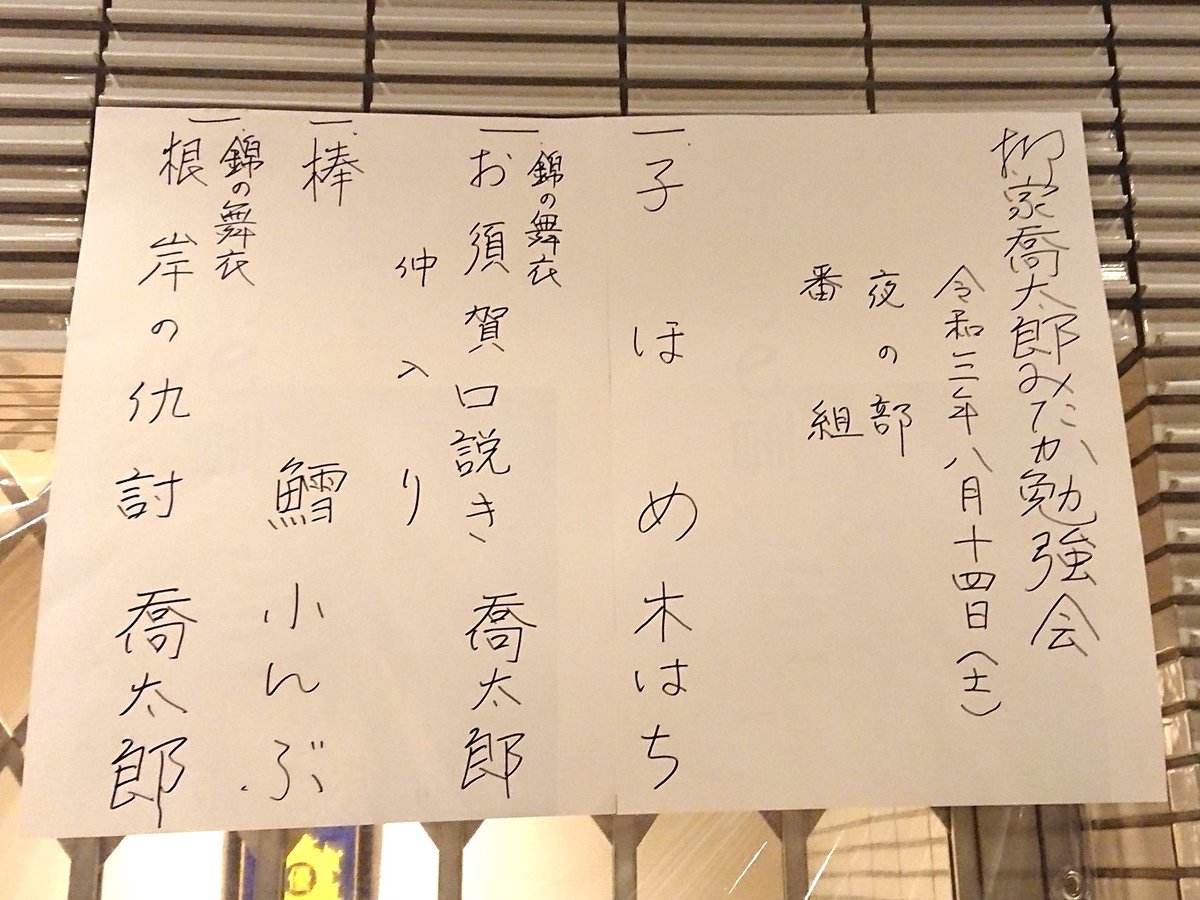 柳家喬太郎みたか勉強会
令和三年八月十四日(土)
夜の部
番組
一子ほめ 木はち
錦の舞衣
一お須賀口説き 喬太郎
仲入り
一棒鱈 小んぶ
錦の舞衣
一根岸の仇討 喬太郎